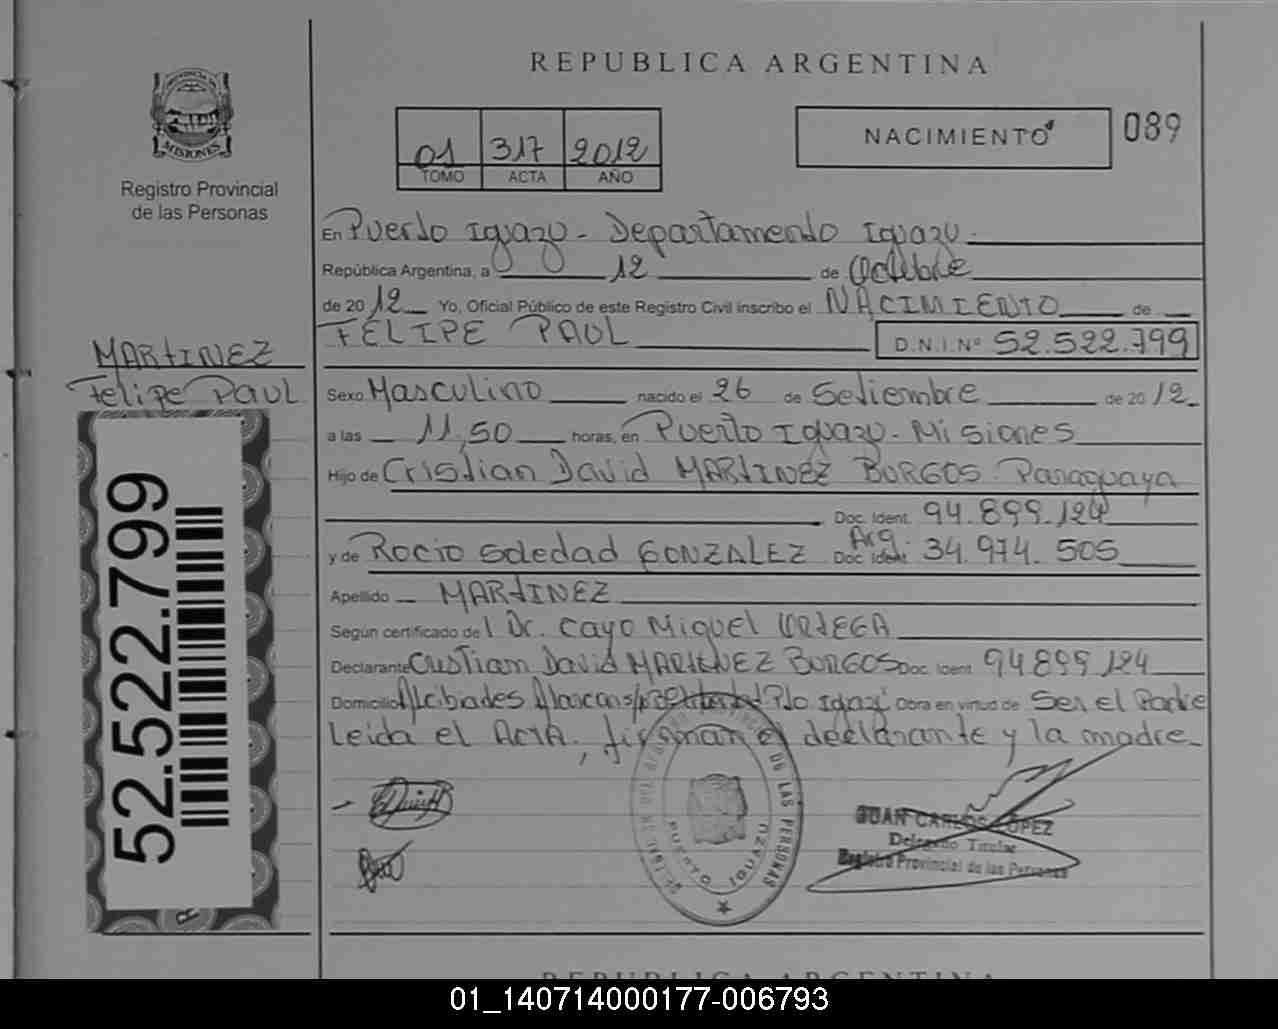 REPUBLICA ARGENTINA
PROVINCIA DE
MISIONES
Registro Provincial
de las Personas
01 317 2012
TOMO ACTA AÑO
NACIMIENTO
089
En Puerto Iguazu - Departamento Iguazu -
República Argentina, a 12 de Octubre
de 2012 Yo, Oficial Público de este Registro Civil inscribo el NACIMIENTO de
FELIPE PAUL
D.N.I. Nº 52.522.799
MARTINEZ
Felipe PAUL
Sexo Masculino nacido el 26 de Setiembre de 2012
a las 11,50 horas, en Puerto Iguazu - Misiones
Hijo de Cristian David MARTINEZ BURGOS - Paraguaya
Doc. Ident. 94.899.124
y de Rocio Soledad GONZALEZ Arg. Doc. Ident. 34.974.505
Apellido MARTINEZ
Según certificado de l Dr. Cayo Miguel ORTEGA
Declarante Cristian David MARTINEZ BURGOS Doc. Ident. 94899124
Domicilio Alcibiades Alarcon Pto Iguazú Obra en virtud de Ser el Padre
Leida el ActA, firman el declarante y la madre
52.522.799
LAS PERSONAS
PUERTO IGUAZU
JUAN CARLOS LOPEZ
Delegado Titular
Registro Provincial de las Personas
REPUBLICA ARGENTINA
01_140714000177-006793